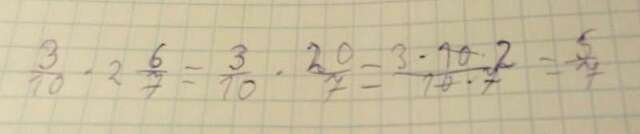 3/10 · 2 6/7 = 3/10 · 20/7 = 3·10·2/10·7 = 5/7